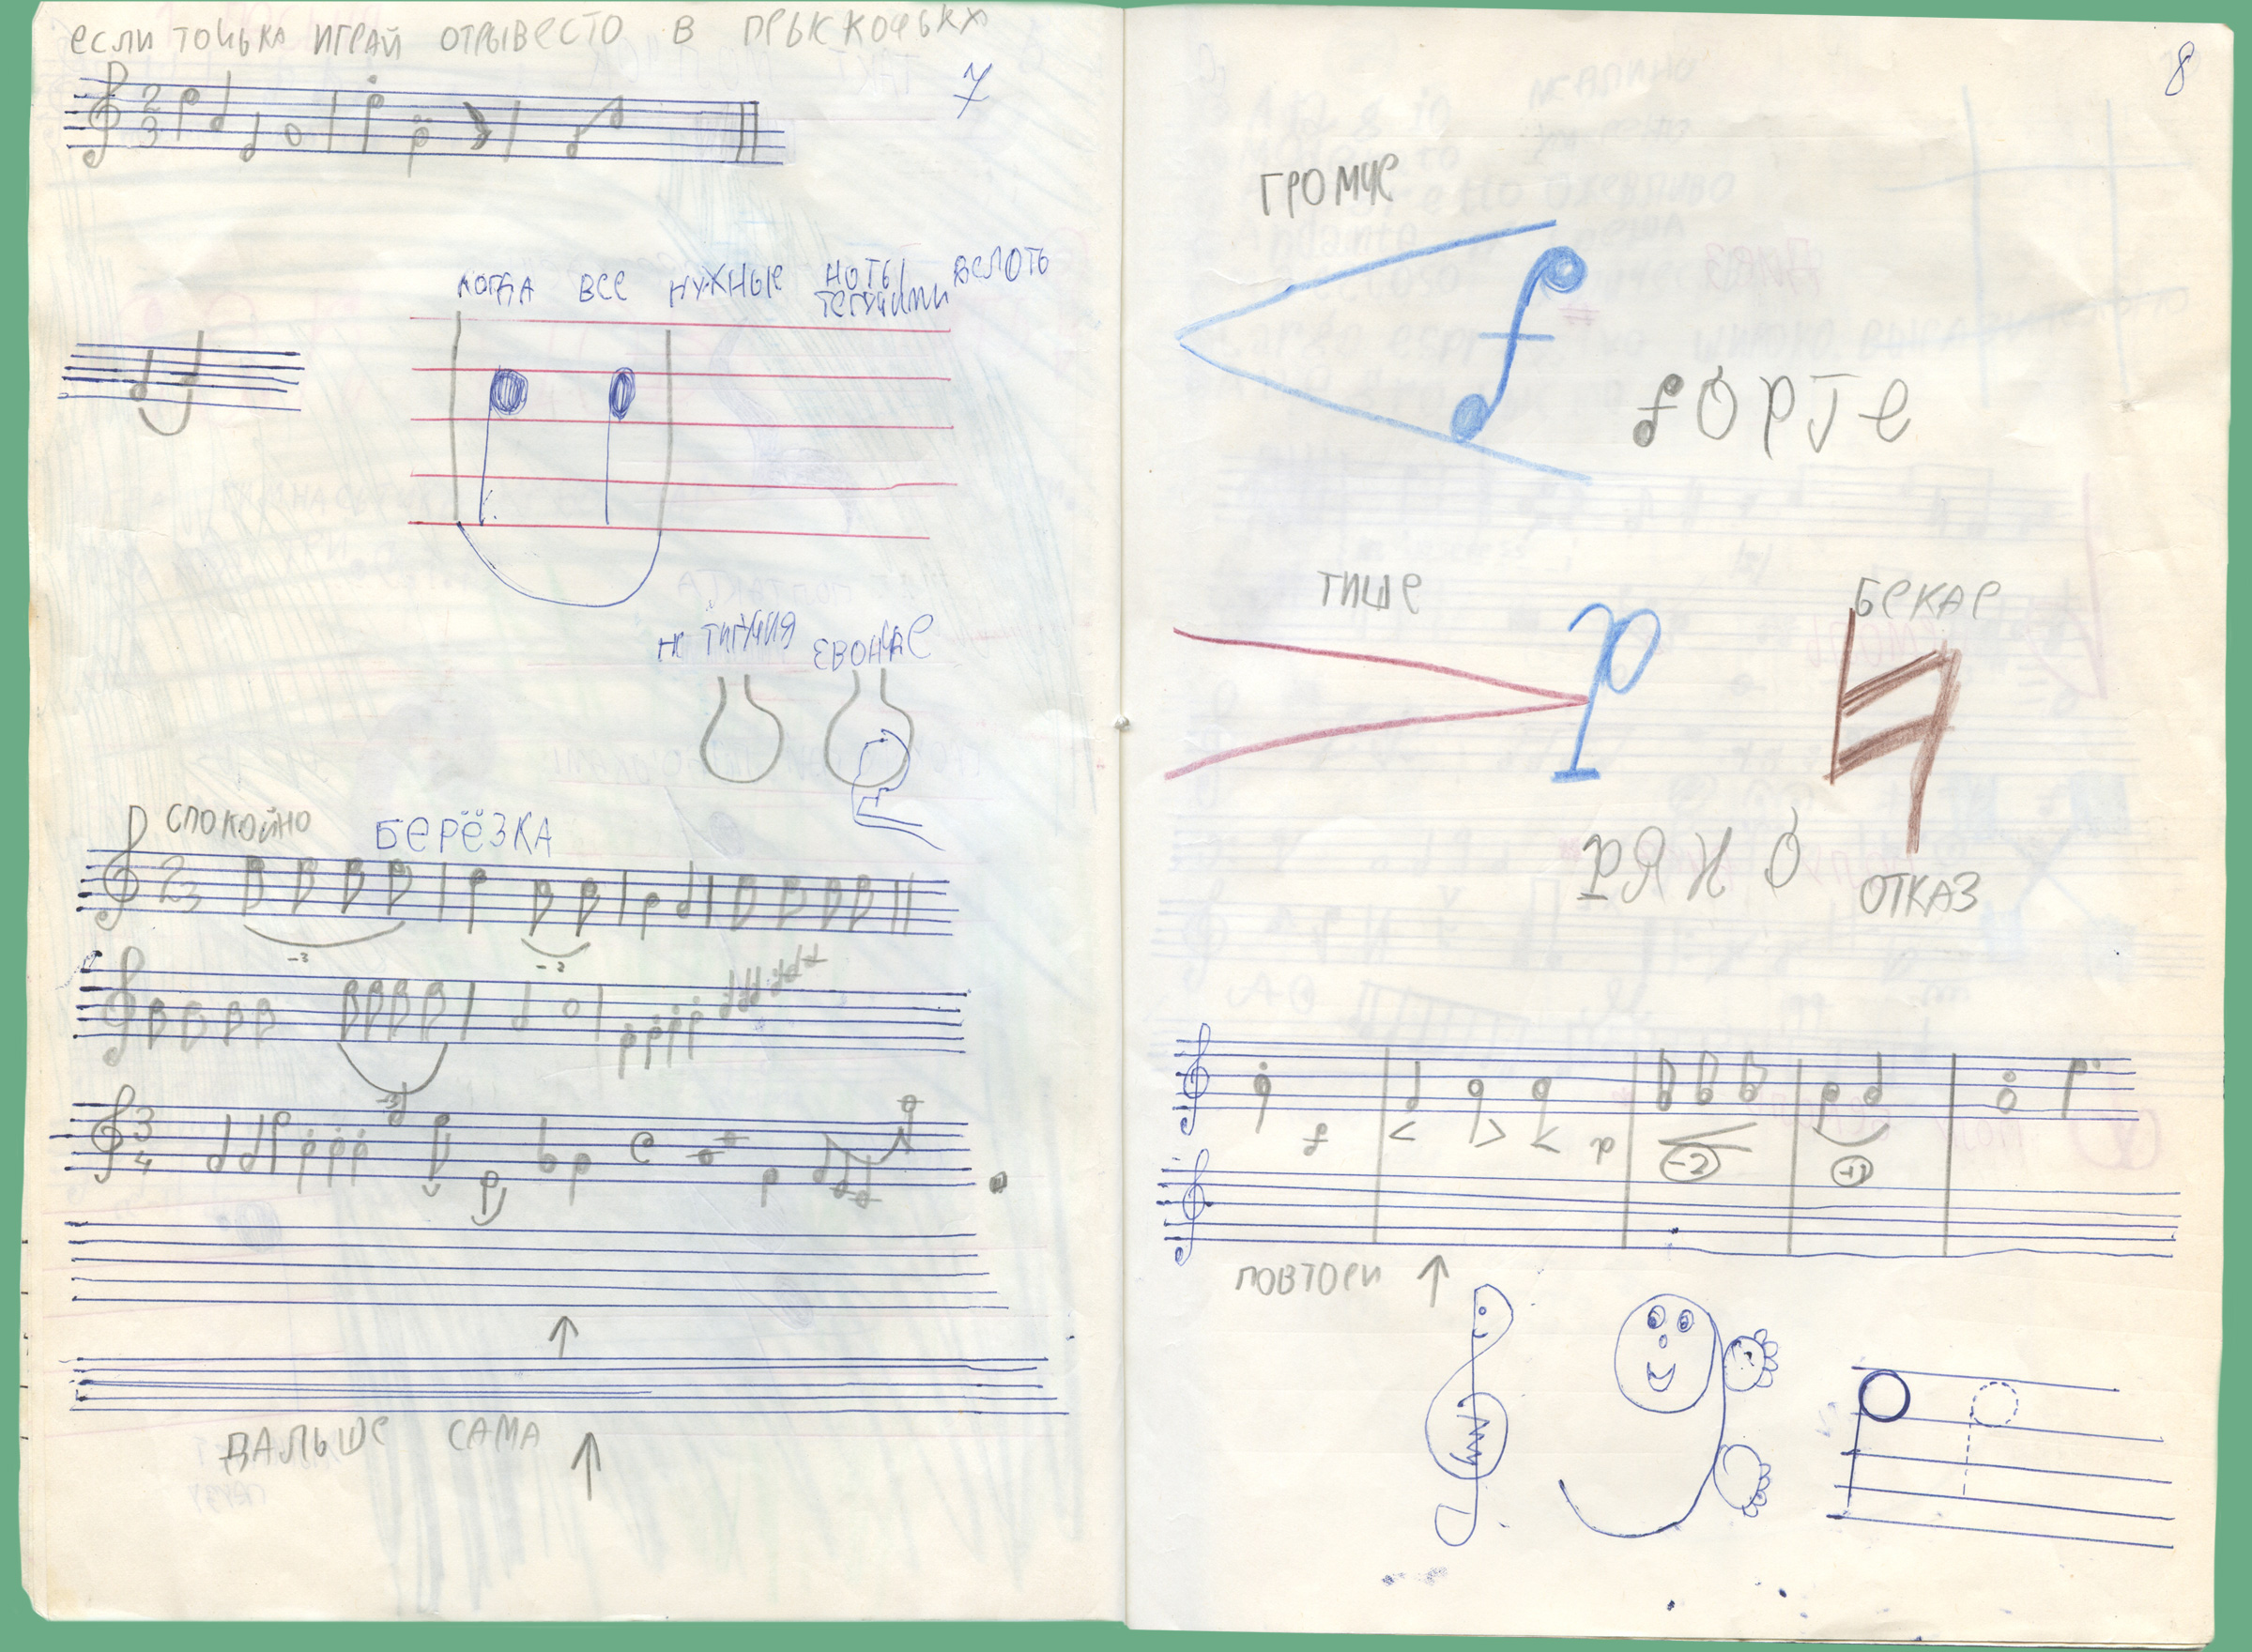 если тоцька играй отрывесто в прыккочьках
7
когда все нужные ноты вслоть
тегучими
не тигучия
звонкае
спокойно
БЕРЁЗКА
-3
-2
ДАЛЬШЕ САМА
8
ГРОМЧЕ
f
fОРТЕ
ТИШЕ
p
БЕКАЕ
РЯНО
ОТКАЗ
f
p
-2
ПОВТОРИ